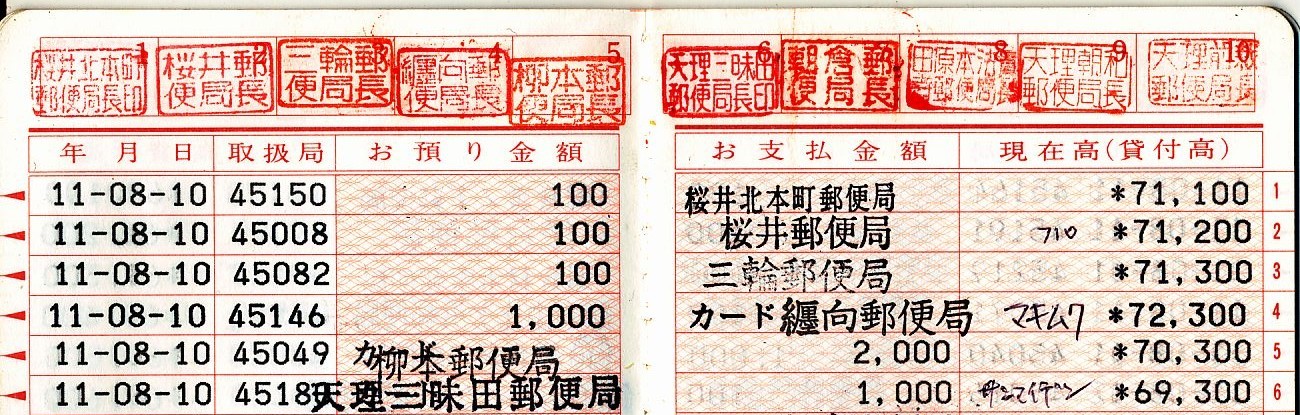 1 2 3 4 5 6 7 8 9 10
桜井北本町郵便局長印 桜井郵便局長 三輪郵便局長 纒向郵便局長 柳本郵便局長 天理三昧田郵便局長印 朝倉郵便局長 田原本法貴寺郵便局長 天理朝和郵便局長 天理前栽郵便局長
年月日 取扱局 お預り金額 お支払金額 現在高(貸付高)
11-08-10 45150 100 桜井北本町郵便局 *71,100 1
11-08-10 45008 100 桜井郵便局 *71,200 2
11-08-10 45082 100 三輪郵便局 *71,300 3
11-08-10 45146 1,000 カード 纒向郵便局 マキムク *72,300 4
11-08-10 45049 柳本郵便局 2,000 *70,300 5
11-08-10 天理三昧田郵便局 1,000 サンマイデン *69,300 6